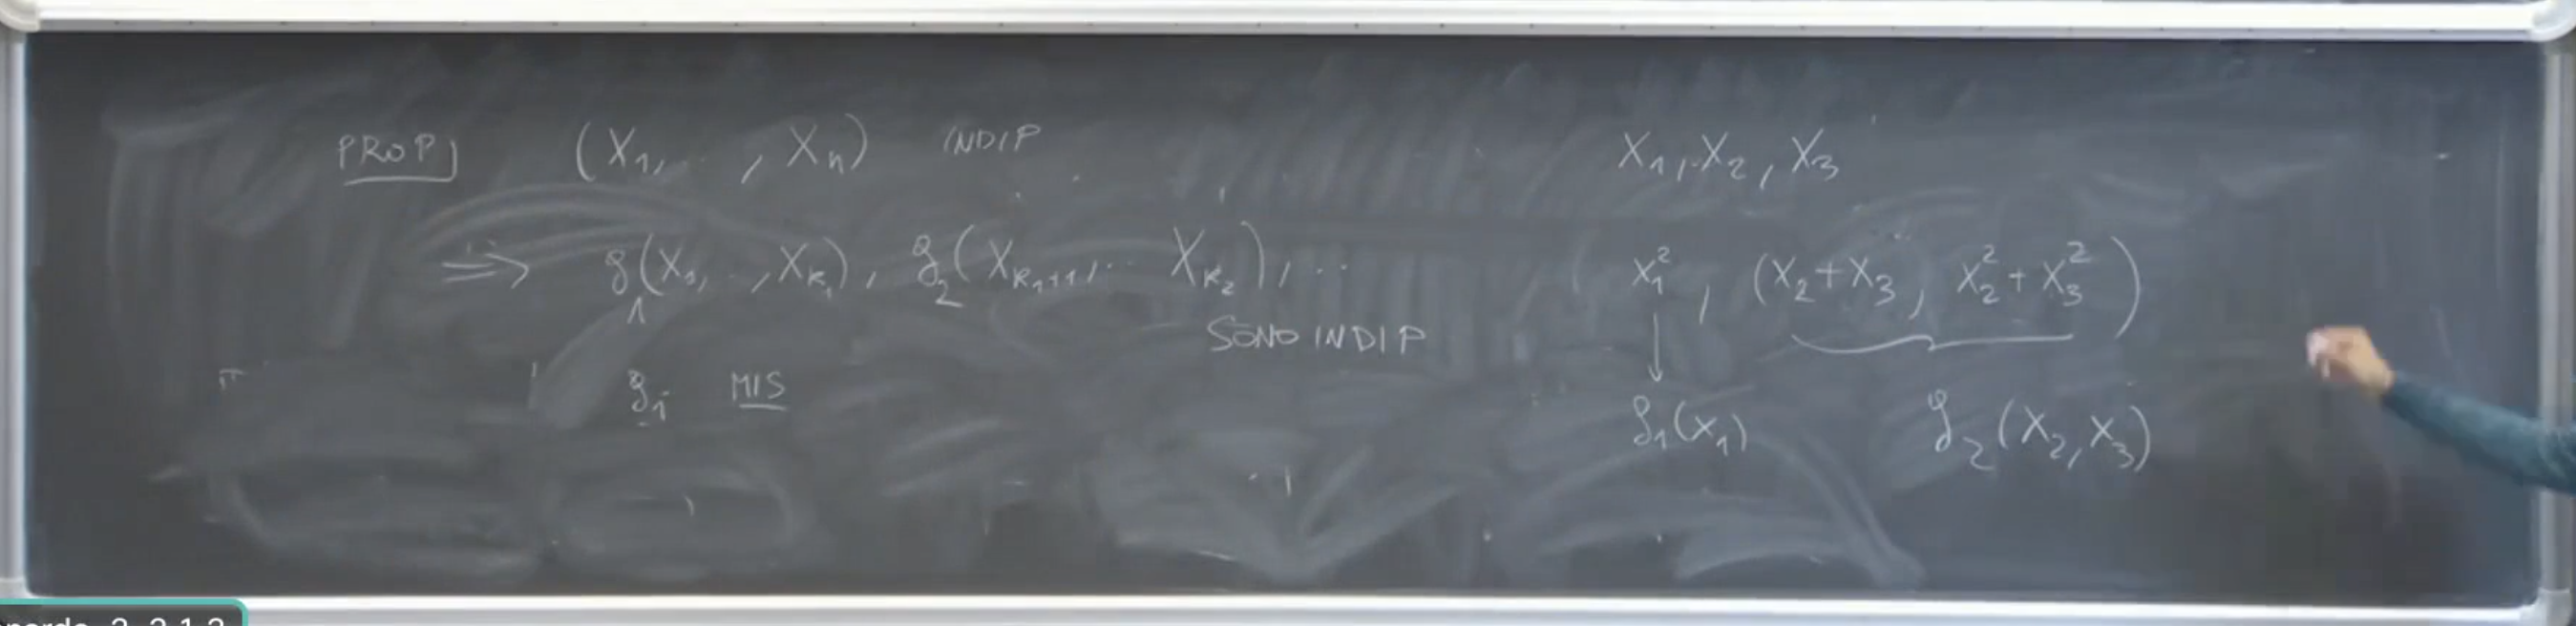 PROP] (X₁, .. , Xₙ) INDIP
⇒ g₁(X₁, .. , X_{K₁}), g₂(X_{K₁+1}, .. X_{K₂}), ..
SONO INDIP
gᵢ MIS
X₁, X₂, X₃
X₁², (X₂+X₃, X₂²+X₃²)
↓
g₁(X₁) g₂(X₂, X₃)